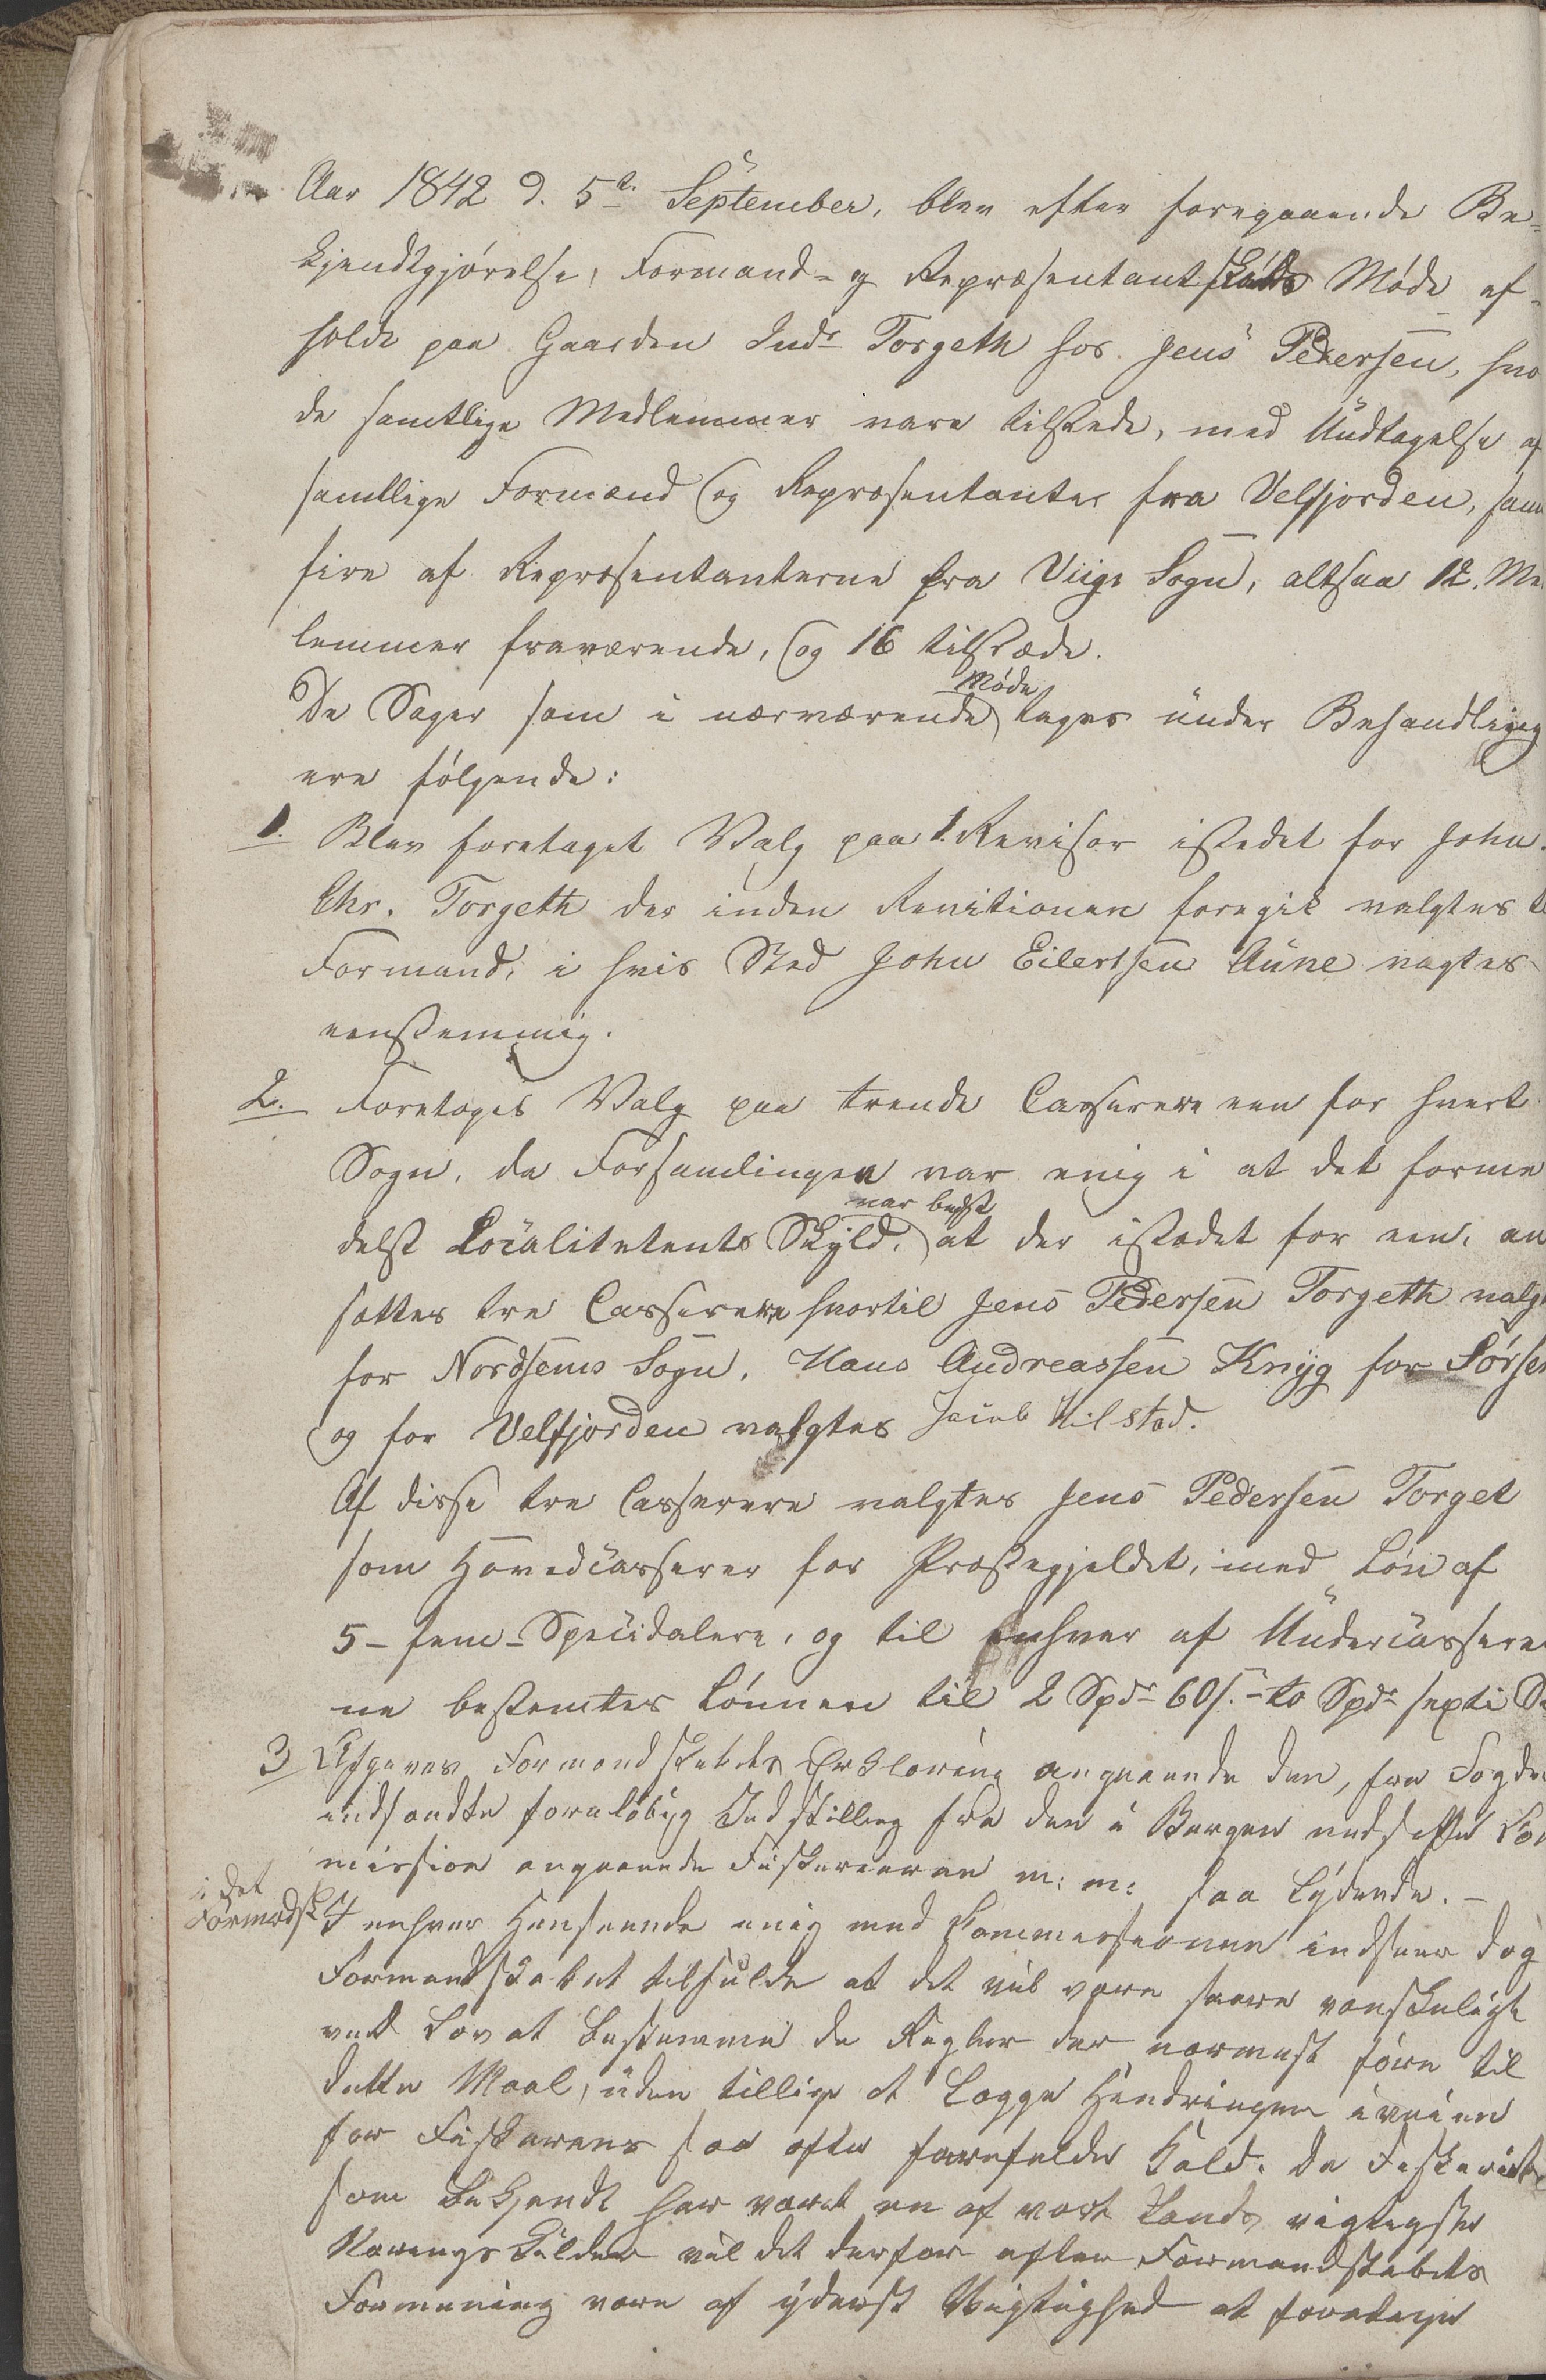 Aar 1842 d. 5te September, blev efter foregaaende Be-
kjendtgjörelse, Formand- og Repræsentantskabs Möde af-
holdt paa Gaarden Indr Torgeth hos Jens Pedersen, hvo
de samtlige Medlemmer vare tilstede, med Undtagelse af
samtlige Formænd og Repræsentanter fra Velfjorden, samt
fire af Repræsentanterne fra Viigs Sogn, altsaa 12. Me
lemmer fraværende, og 16 tilstæde.
Möde
De Sager som i nærværende tages under Behandling
ere fölgende:
1. Blev foretaget Valg paa 1. Revisor istedet for John.
Chr. Torgeth der inden Revitionen foregik valgtes t
Formand, i hvis Sted John Eilertsen Aune vagtes
eenstemmig.
2. Foretoges Valg paa trende Casserere een for hvert
Sogn, da Forsamlingen var enig i at det forme
var bedst
delst Localitetents Skyld, at der istædet for een, an
sættes tre Casserere hvortil Jens Pedersen Torgeth valgt
for Nordsems Sogn, Hans Andreassen Knyg for Sörsem
og for Velfjorden valgtes Jacob Hilstad.
Af disse tre Casserere valgtes Jens Pedersen Torget
som Hovedcasserer for Præstegjeldet, med Lön af
5 - fem - Specidalere, og til enhver af Undercassere
ne bestemtes Lönnen til 2 Spdr 60 s. - to Spdr sexti S
3 Afgaves Formandskabets Erklæring angaaende den, fra Fogde
indsendte forelöbig Indstilling fra den i Bergen nedsatte Com
mission angaaende Fiskerierne m: m: saa Lydende. -
i det
Formedsk
I enhver Henseende enig med Kommissionen indseer dog
Formandskabet tilfulde at det vil være saare vanskeligt
ved Lov at bestemme de Regler der nærmest före til
dette Maal, uden tillige at Lægge Hindringer iveien
for Fiskerens saa ofte farefulde Kald. Da Fiskeriet
som bekjendt har været en af vort Lands vigtigste
Nærings Kilder vil det derfor efter Formandskabets
Formening være af yderst Vigtighed at foretage